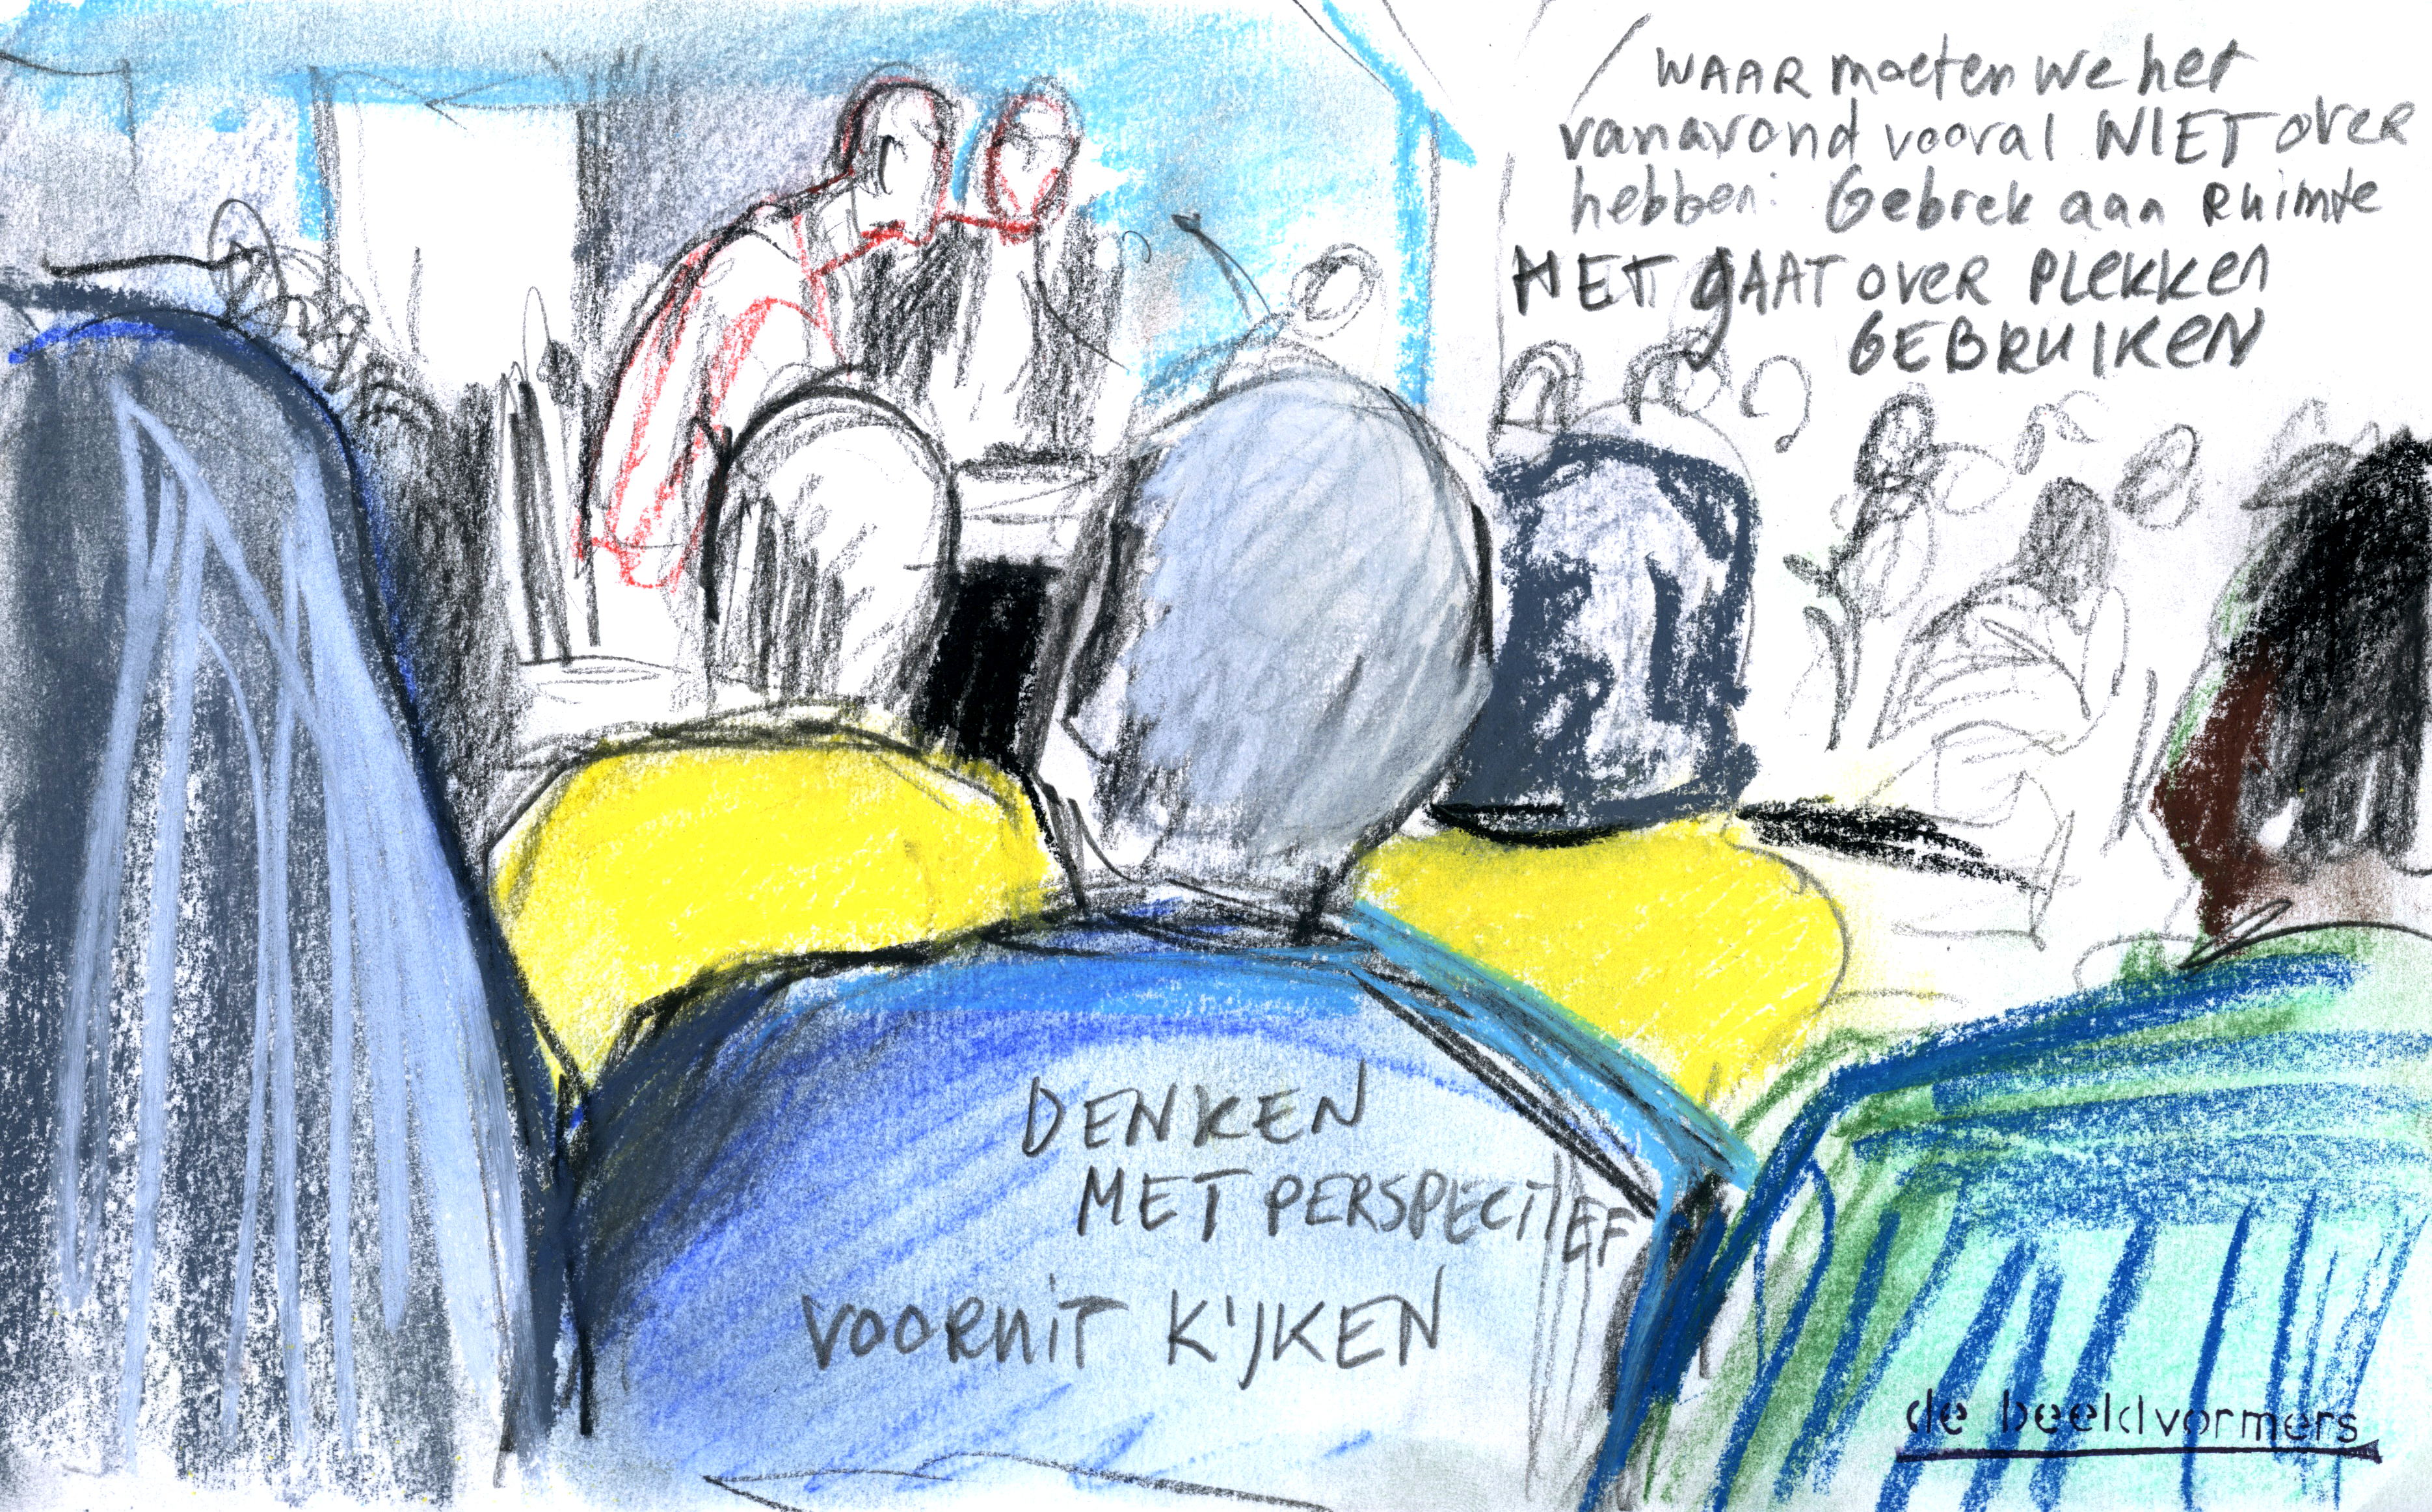 WAAR moeten we het
vanavond vooral NIET over
hebben: Gebrek aan Ruimte
HET gAAT over PLEKKEN
GEBRUIKEN
DENKEN
MET PERSPECTIEF
VOORUIT KIJKEN
de beeldvormers